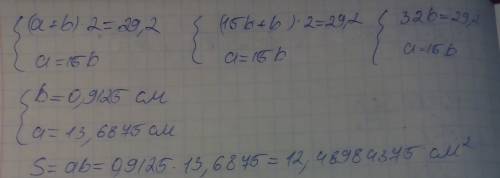 (a+b)·2=29,2 (15b+b)·2=29,2 32b=29,2
a=15b a=15b a=15b
b=0,9125 см
a=13,6875 см
S=ab=0,9125·13,6875=12,48984375 см²